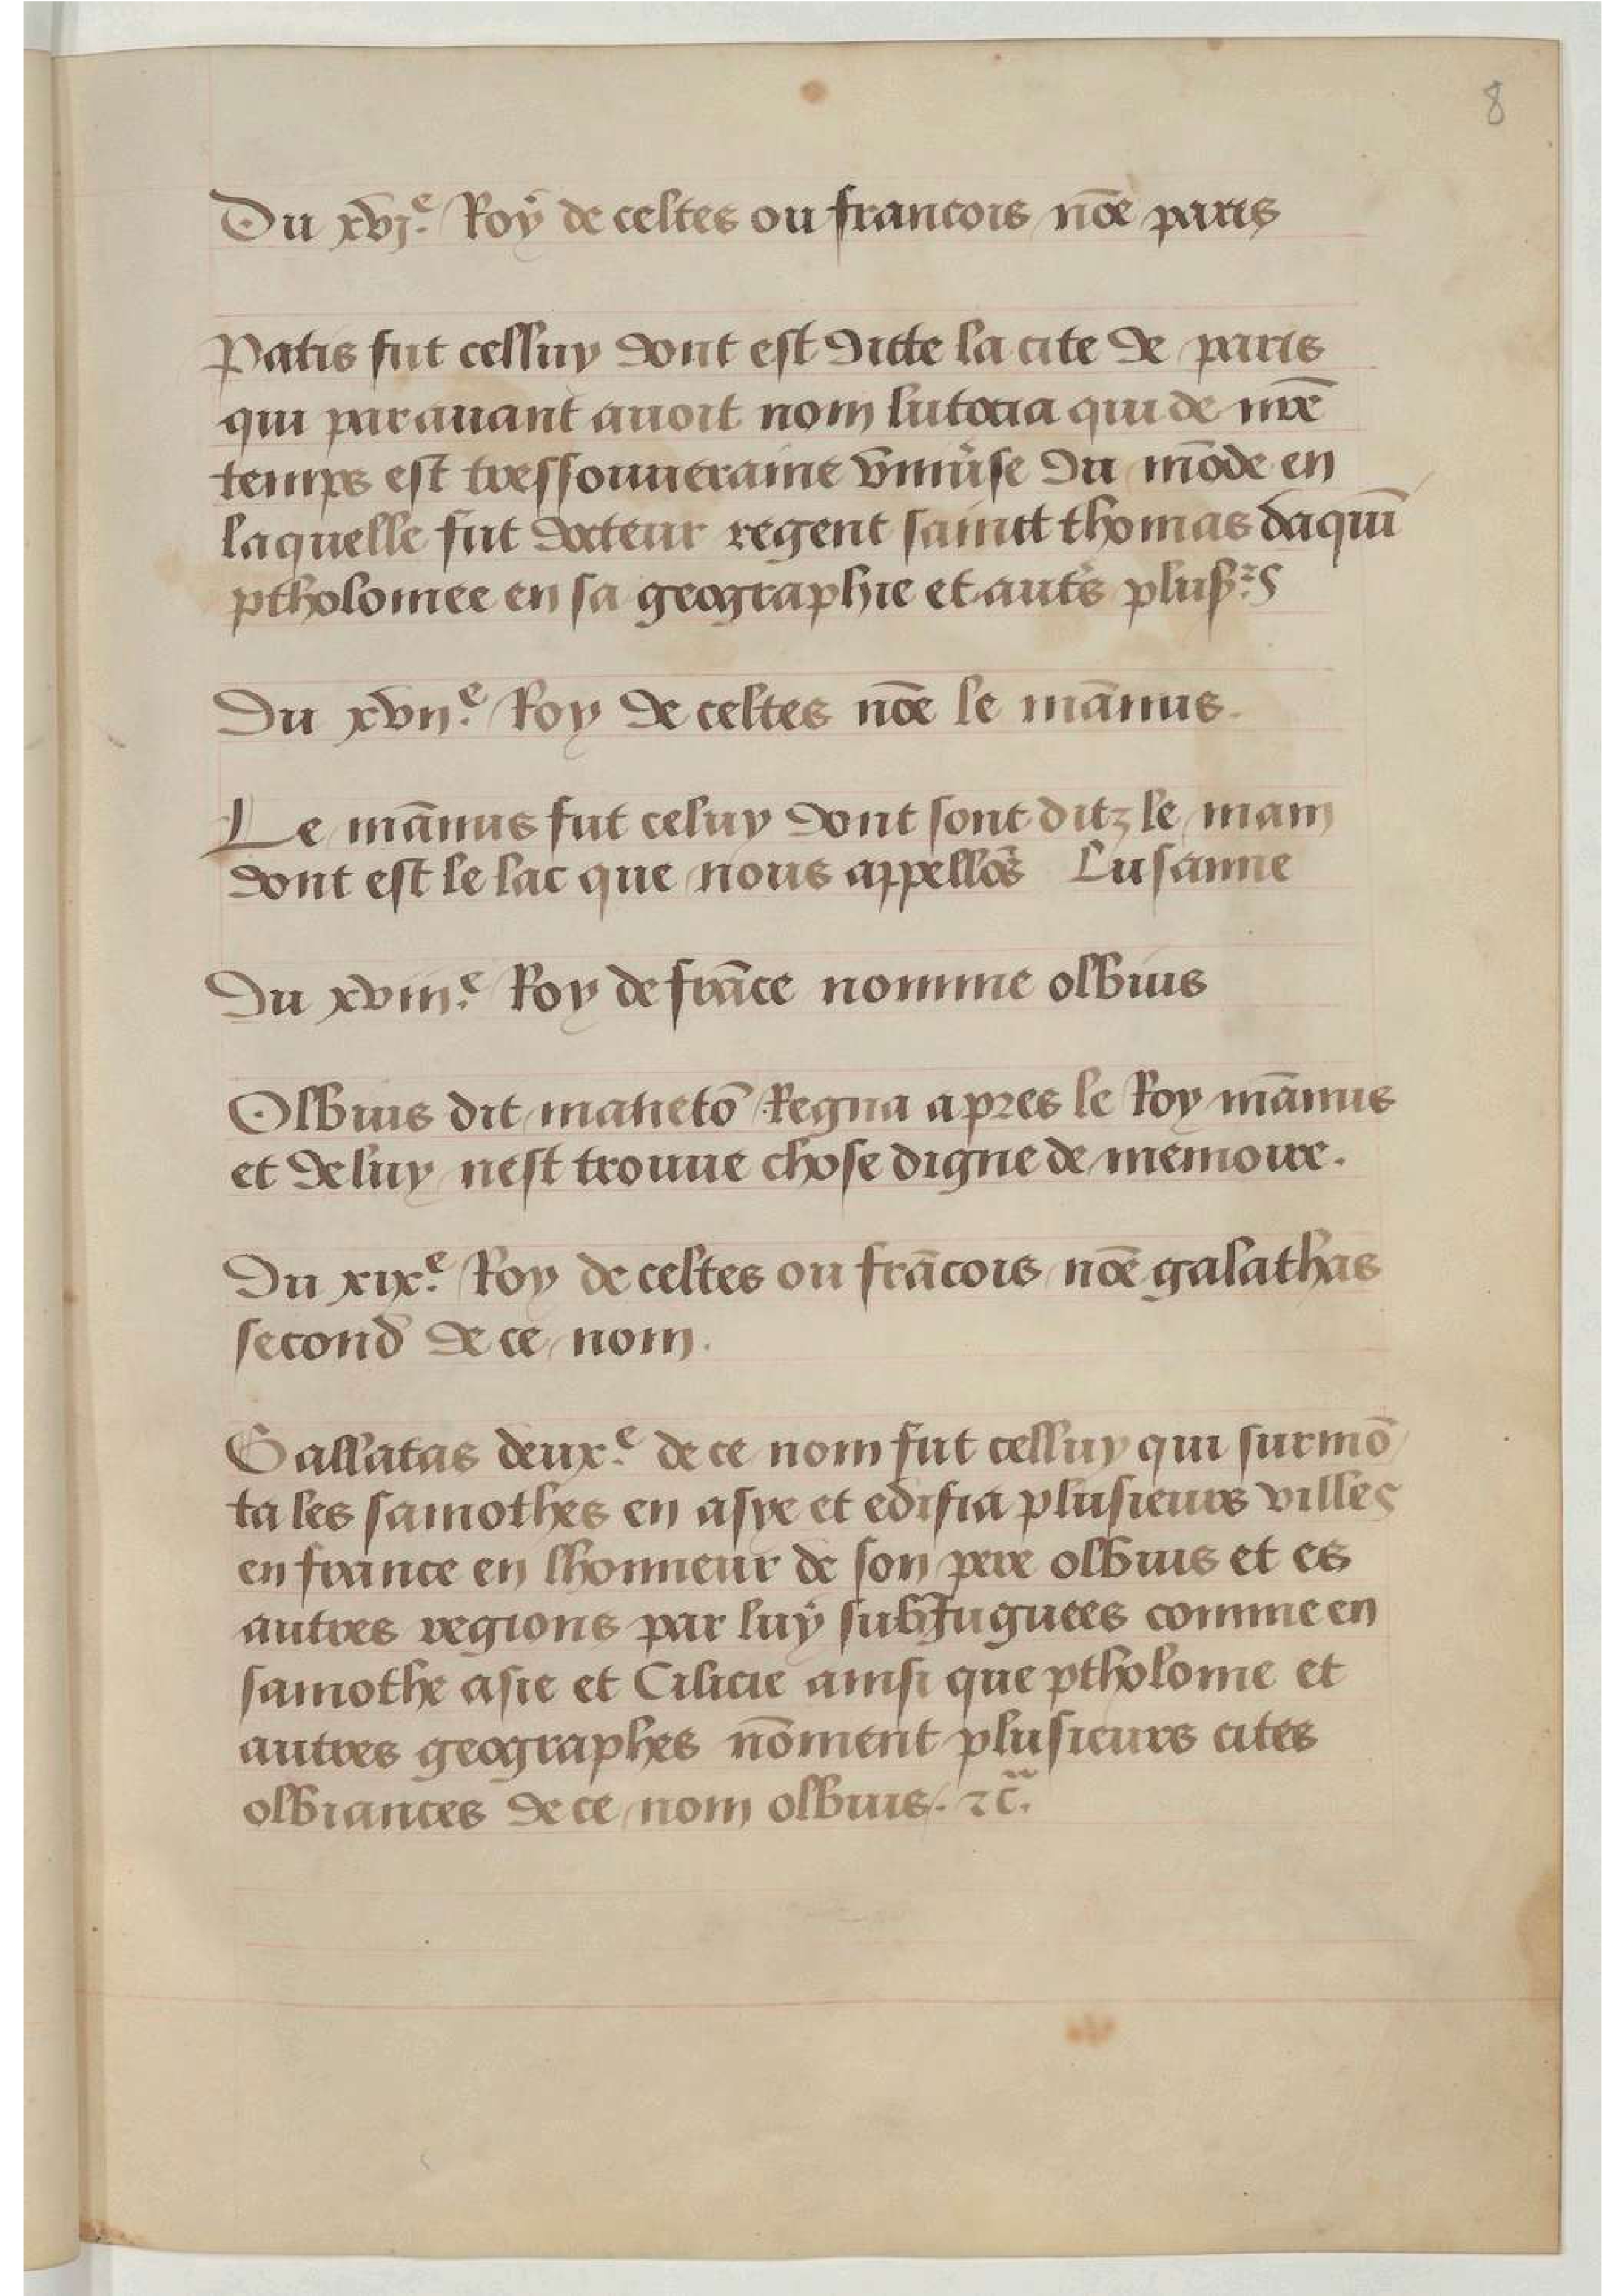 8
Du xvj.e Roy de celtes ou francois nōe paris
Patis fut celluy dont est ditte la cite de paris
qui parauant auoit nom lutecia qui de nr̄e
temps est tressouueraine vniu'se du mōde en
laquelle fut docteur regent sainct thomas daquī
ptholomee en sa geographie et aut's plus.rs
Du xvii.e Roy de celtes nōe le mānus.
Le mānus fut celuy dont sont ditz le mam
dont est le lac que nous appellōs Lusanne
Du xviii.e Roy de frāce nomme olbius
Olbius dit manetō Regna apres le Roy mānus
et de luy nest trouue chose digne de memoire.
Du xix.e Roy de celtes ou frācois nōe galathas
second de ce nom.
Gallatas deux.e de ce nom fut celluy qui surmō
ta les samothes en asye et edifia plusieurs villes
en france en lhonneur de son pere olbius et es
autres regions par luy subjuguees comme en
samothe asie et Cilicie ainsi que ptholome et
autres geographes nōment plusieurs cites
olbiances de ce nom olbius. ⁊c̃.